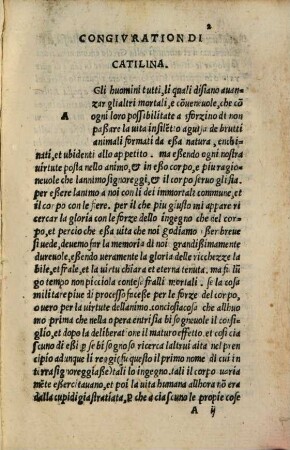 2
CONGIVRATION DI
CATILINA.
Gli huomini tutti, li quali disiano auan-
zar gli altri mortali, e cōueneuole, che cō
A
ogni loro possibilitate a sforzino di non
paßare la uita in silētio a guisa de brutti
animali formati da eßa natura, enchi-
nati, et ubidenti allo appetito. ma eßendo ogni nostra
uirtute posta nello animo, & in eßo corpo, e piu ragio-
neuole che lanimo signoreggi, & il corpo seruo gli sia.
per eßere lanimo a noi con li dei immortali commune, et
il corpo con le fiere. per il che piu giusto mi appare ri
cercar la gloria con le forze dello ingegno che del cor-
po, et percio che eßa uita che noi godiamo eßer breue
si uede, deuemo far la memoria di noi grandißimamente
dureuole, eßendo ueramente la gloria delle ricchezze la
bile, et frale, et la uirtu chiara et eterna tenuta. ma fi lū
go tempo non picciola contesa fra li mortali. se la cosa
militare piu di processo faceße per le forze del corpo,
o uero per la uirtute dell'animo, conciosia cosa che all'huo
mo prima che nella opera entri sia bisogneuole il consi-
glio, et dopo la deliberatione il maturo effetto. et cosi cia
scuno di eßi per se bisognoso ricerca l'altrui aita nel pren
cipio adunque li regi (che questo il primo nome di cui in
terra signoreggiaße) tali lo ingegno, tali il corpo uaria
mēte eßercitauano, et poi la uita humana allhora nō era
dalla cupidigia stratiata, & che a ciascuno le proprie cose
A ij